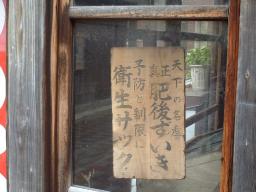 天下の名産
正真
肥後ずいき
予防と制限に
衛生サック